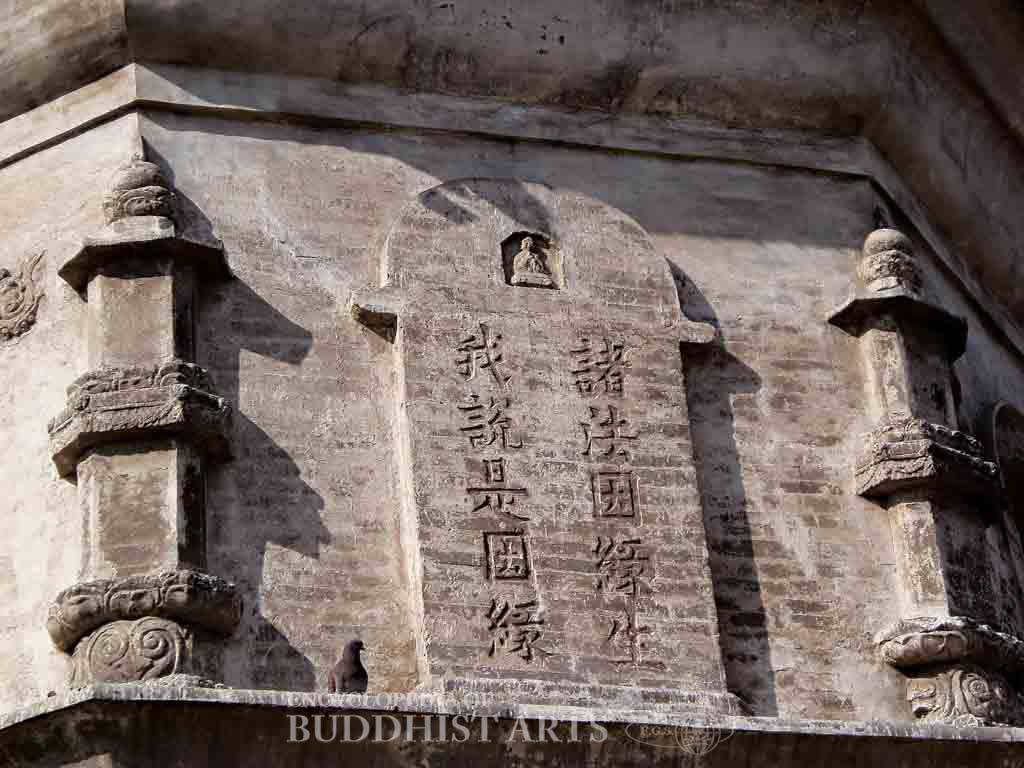 諸法因緣生
我說是因緣
ENCYCLOPEDIA OF
BUDDHIST ARTS